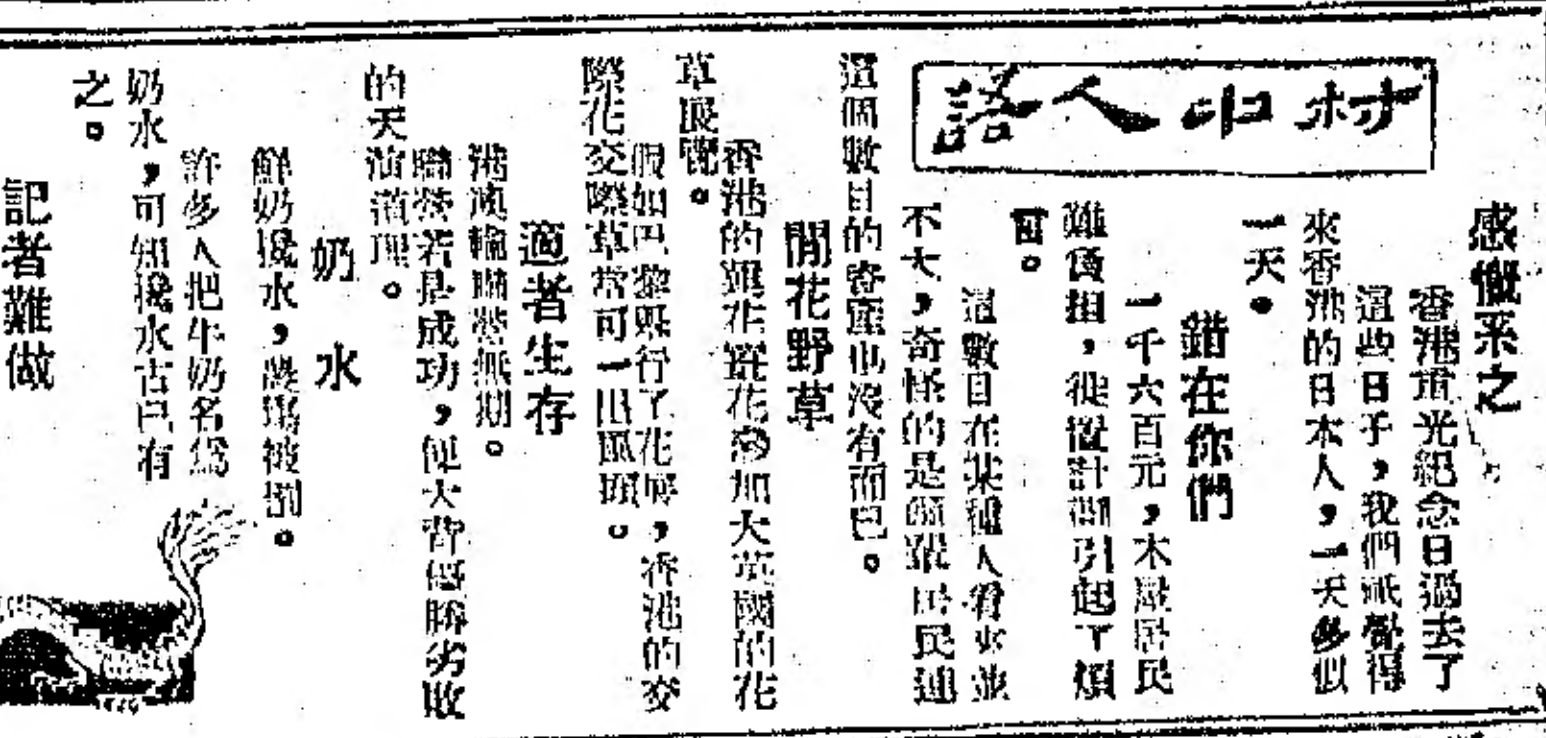 村中人語
感慨系之
香港重光紀念日過去了
這些日子，我們祇覺得
來香港的日本人，一天多似
一天。
錯在你們
一千六百元，木屋居民
難負担，徙置計劃引起了煩
惱。
這數目在某種人看來並
不大，奇怪的是 居民連
這個數目的 也沒有而已。
閒花野草
香港的選花 花參加大英國的花
草展覽。
假如巴黎舉行了花展，香港的交
際花交際草當可一出風頭。
適者生存
港澳輪聯營無期。
聯營若是成功，便大背優勝劣敗
的天演道理。
奶水
鮮奶攙水， 被罰。
許多人把牛奶名為
奶水，可知攙水古已有
之。
記者難做